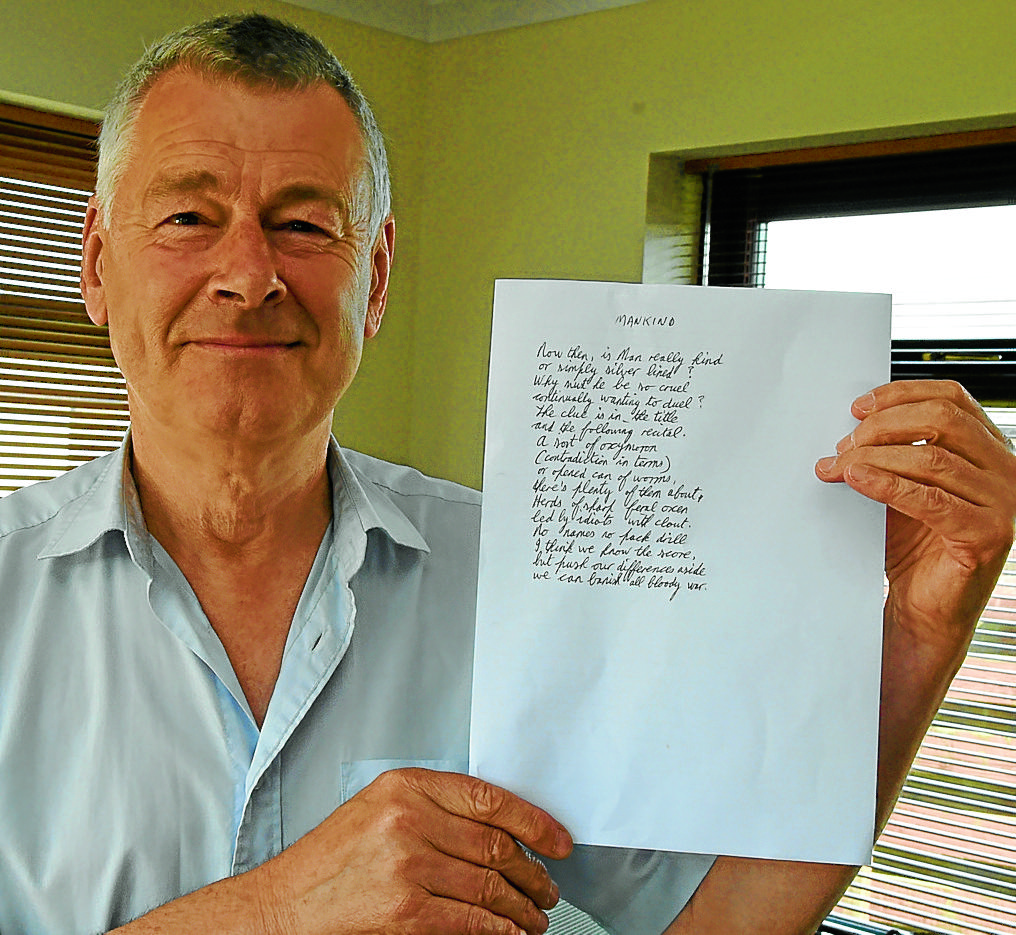 MANKIND
Now then, is Man really kind
or simply silver lined?
Why must he be so cruel
continually wanting to duel?
The clue is in the title
and the following recital.
A sort of oxymoron
(contradiction in terms)
or opened can of worms,
there's plenty of them about,
Herds of feral oxen
led by idiots with clout.
No names no pack drill
I think we know the score,
but push our differences aside
we can banish all bloody war.